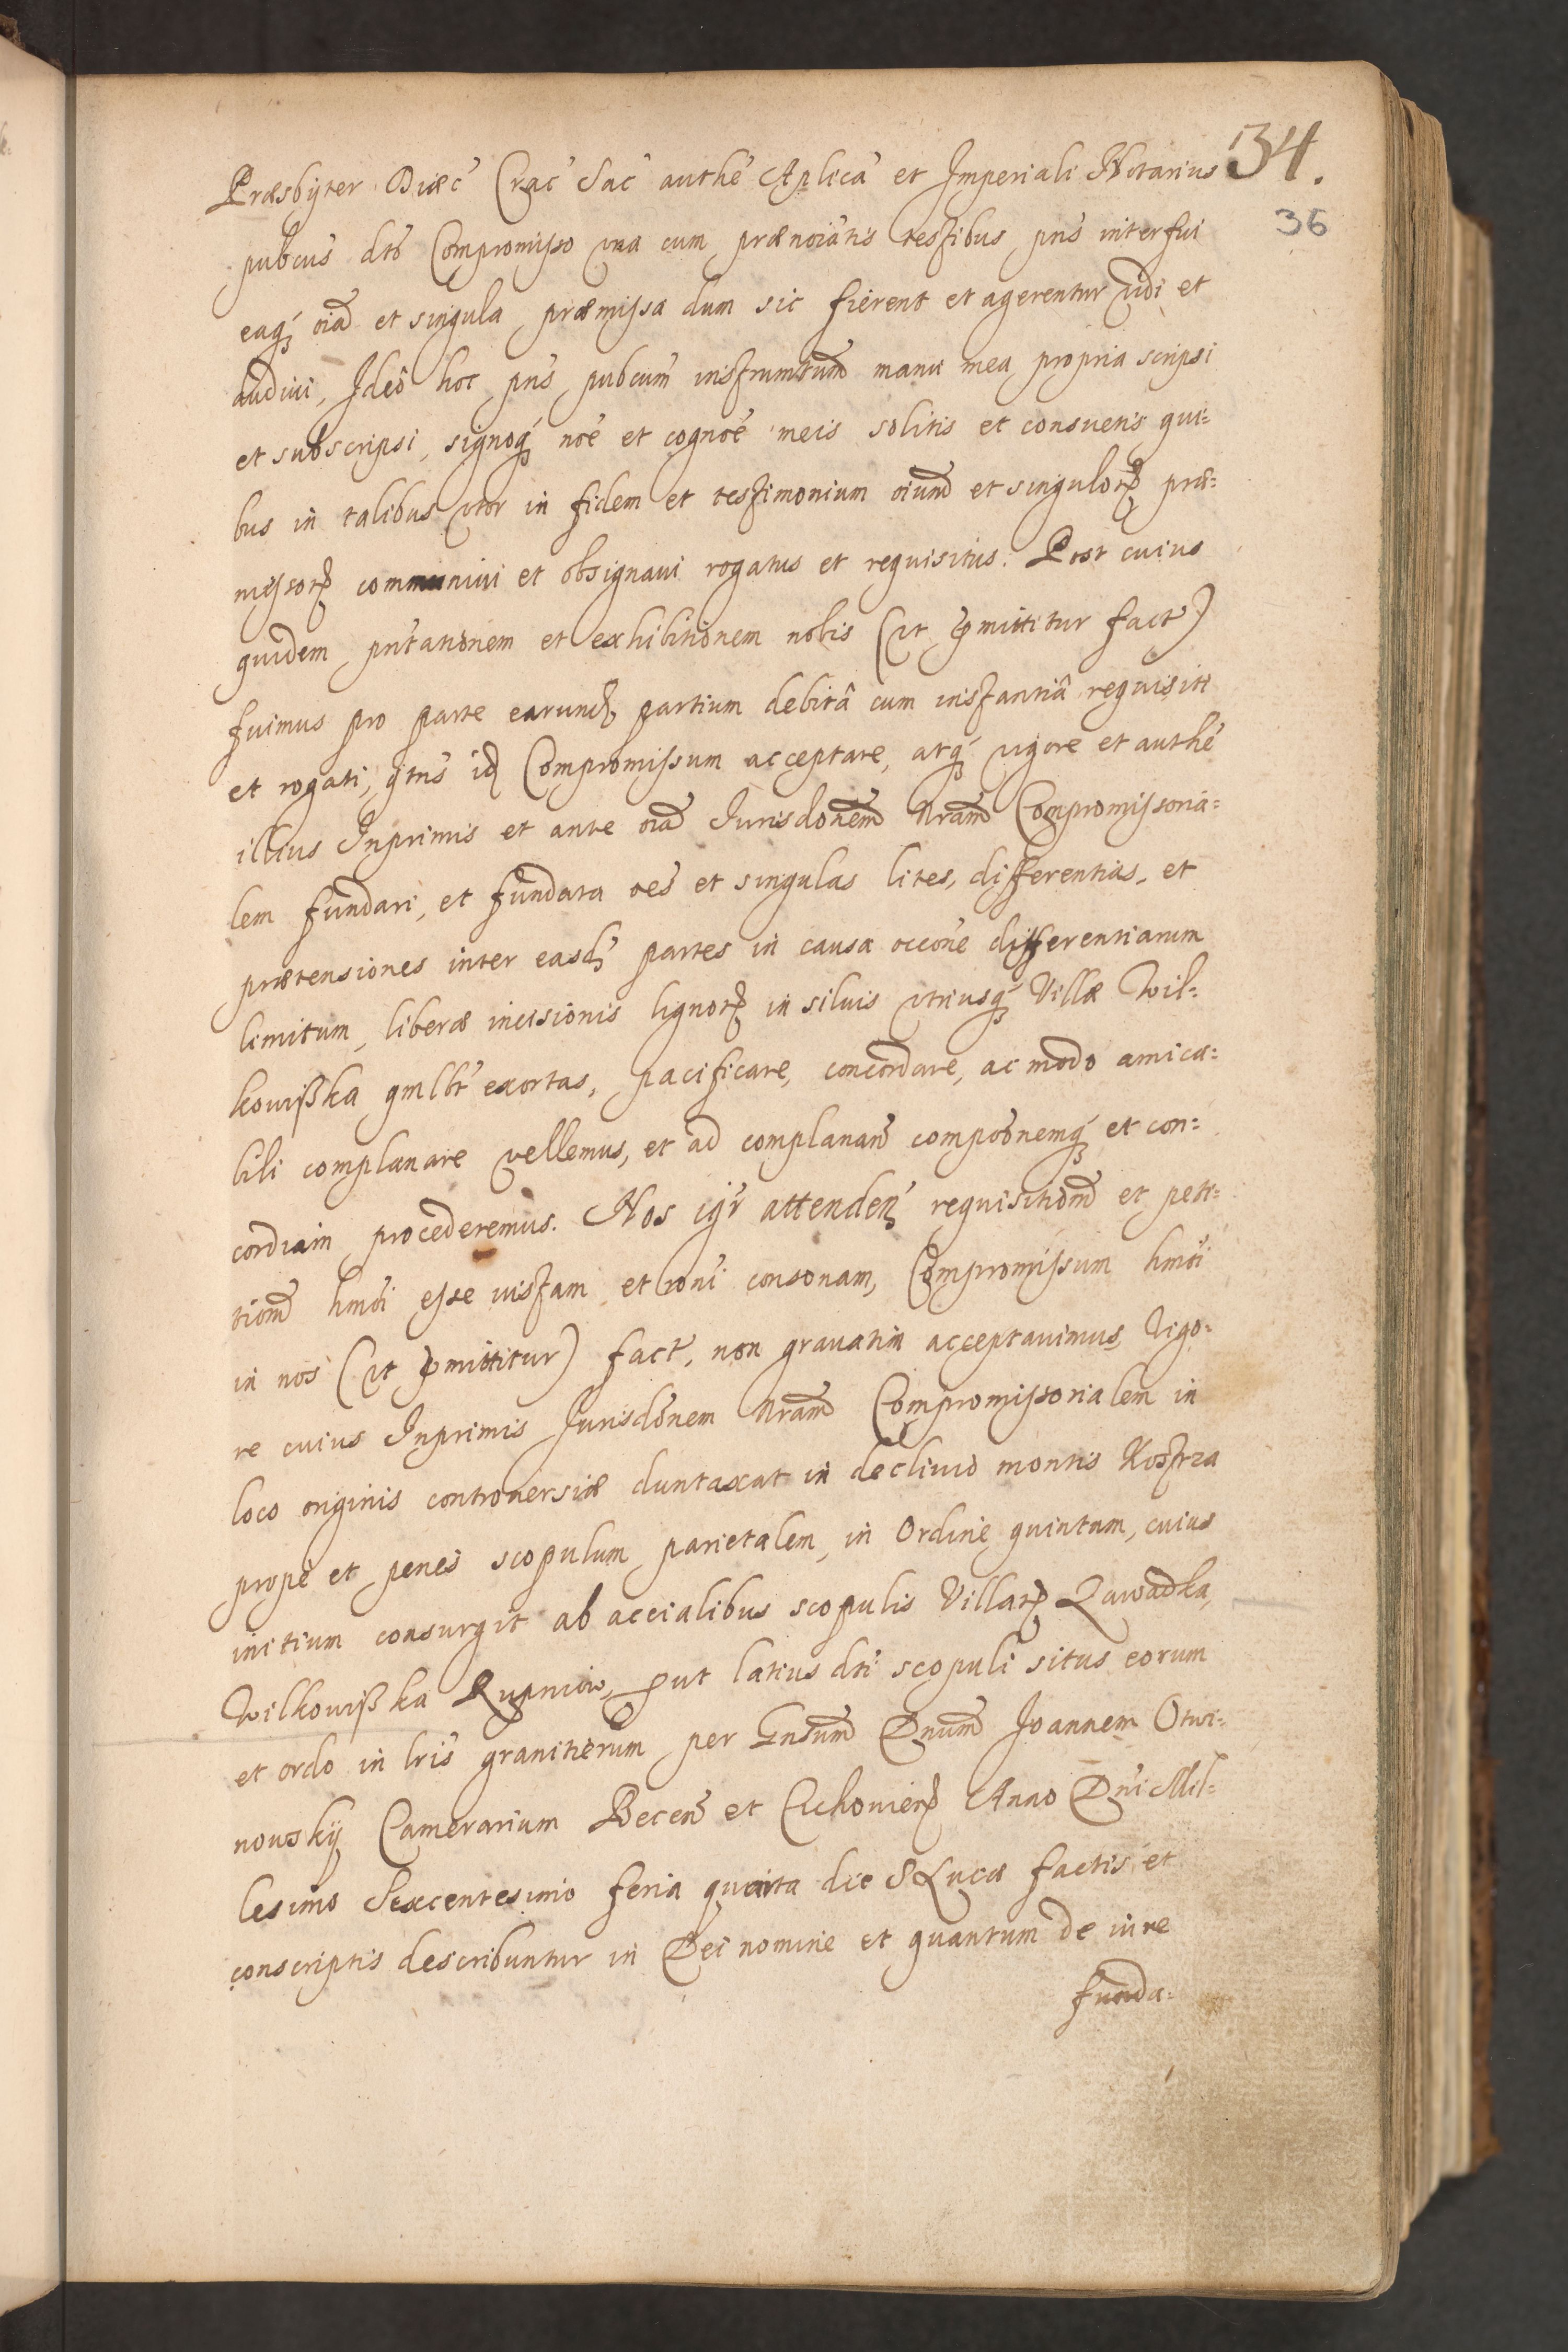 Præsbyter Diæc̃ Crac̃ Sac̃ authẽ Aplicã et Imperiali Notarius 34.
36
pubcus̃ dt̃o Compromisso vna cum prænoĩatis testibus pñs interfui
eaq́ꝫ oĩa et singula præmissa dum sic fierent et agerentur vidi et
audiui, Ideò hoc pñs pubcum̃ instrumtum̃ manu mea propria scripsi
et subscripsi, signoq́ꝫ noẽ et cognoẽ meis solitis et consuetis qui-
bus in talibus vtor in fidem et testimonium oĩum et singuloꝝ præ-
missoꝝ communiui et obsignaui rogatus et requisitus. Post cuius
quidem pñtationem et exhibitionem nobis (vt p̃mittitur fact̃)
fuimus pro parte earundꝫ partium debitâ cum instantiâ requisiti
et rogati, q̃tus̃ idꝫ Compromissum acceptare, atq́ꝫ vigore et authẽ
illius Inprimis et ante oĩa Jurisdonem̃ Nram̃ Compromissoria-
lem fundari, et fundata oẽs et singulas lites, differentias, et
prætensiones inter easdꝫ partes in causa occoñe differentiarum
limitum, liberæ incisionis lignoꝝ in siluis vtriusq́ꝫ Villæ Wil-
kowißka gñlbt̃ exortas, pacificare, concordare, ac modo amica-
bili complanare vellemus, et ad complanam̃ compoñemq́ꝫ et con-
cordiam procederemus. Nos igr̃ attendeñ requisitiom̃ et peti-
tiom̃ hmõi esse iustam et roñi consonam, Compromissum hmõi
in nos (vt p̃mittitur) fact̃, non grauatim acceptauimus, Vigo-
re cuius Inprimis Jurisdoñem Nram̃ Compromissorialem in
loco originis controuersiæ duntaxat in decliuio montis Kostrza
propè et penes scopulum parietalem, in Ordine quintum, cuius
initium consurgit ab accialibus scopulis Villaꝝ Zawadka,
Wilkowißka Rupniow, put latius dt̃i scopuli situs eorum
et ordo in lr̃is granitierum per Gnsum̃ Dnum̃ Joannem Otwi-
nouskij Camerarium Beceñ et Czchowieñ Anno Dñi Mil-
lesimo Sexcentesimo feria quarta die S Lucæ factis et
conscriptis describuntur in Dei nomine et quantum de iure
funda-